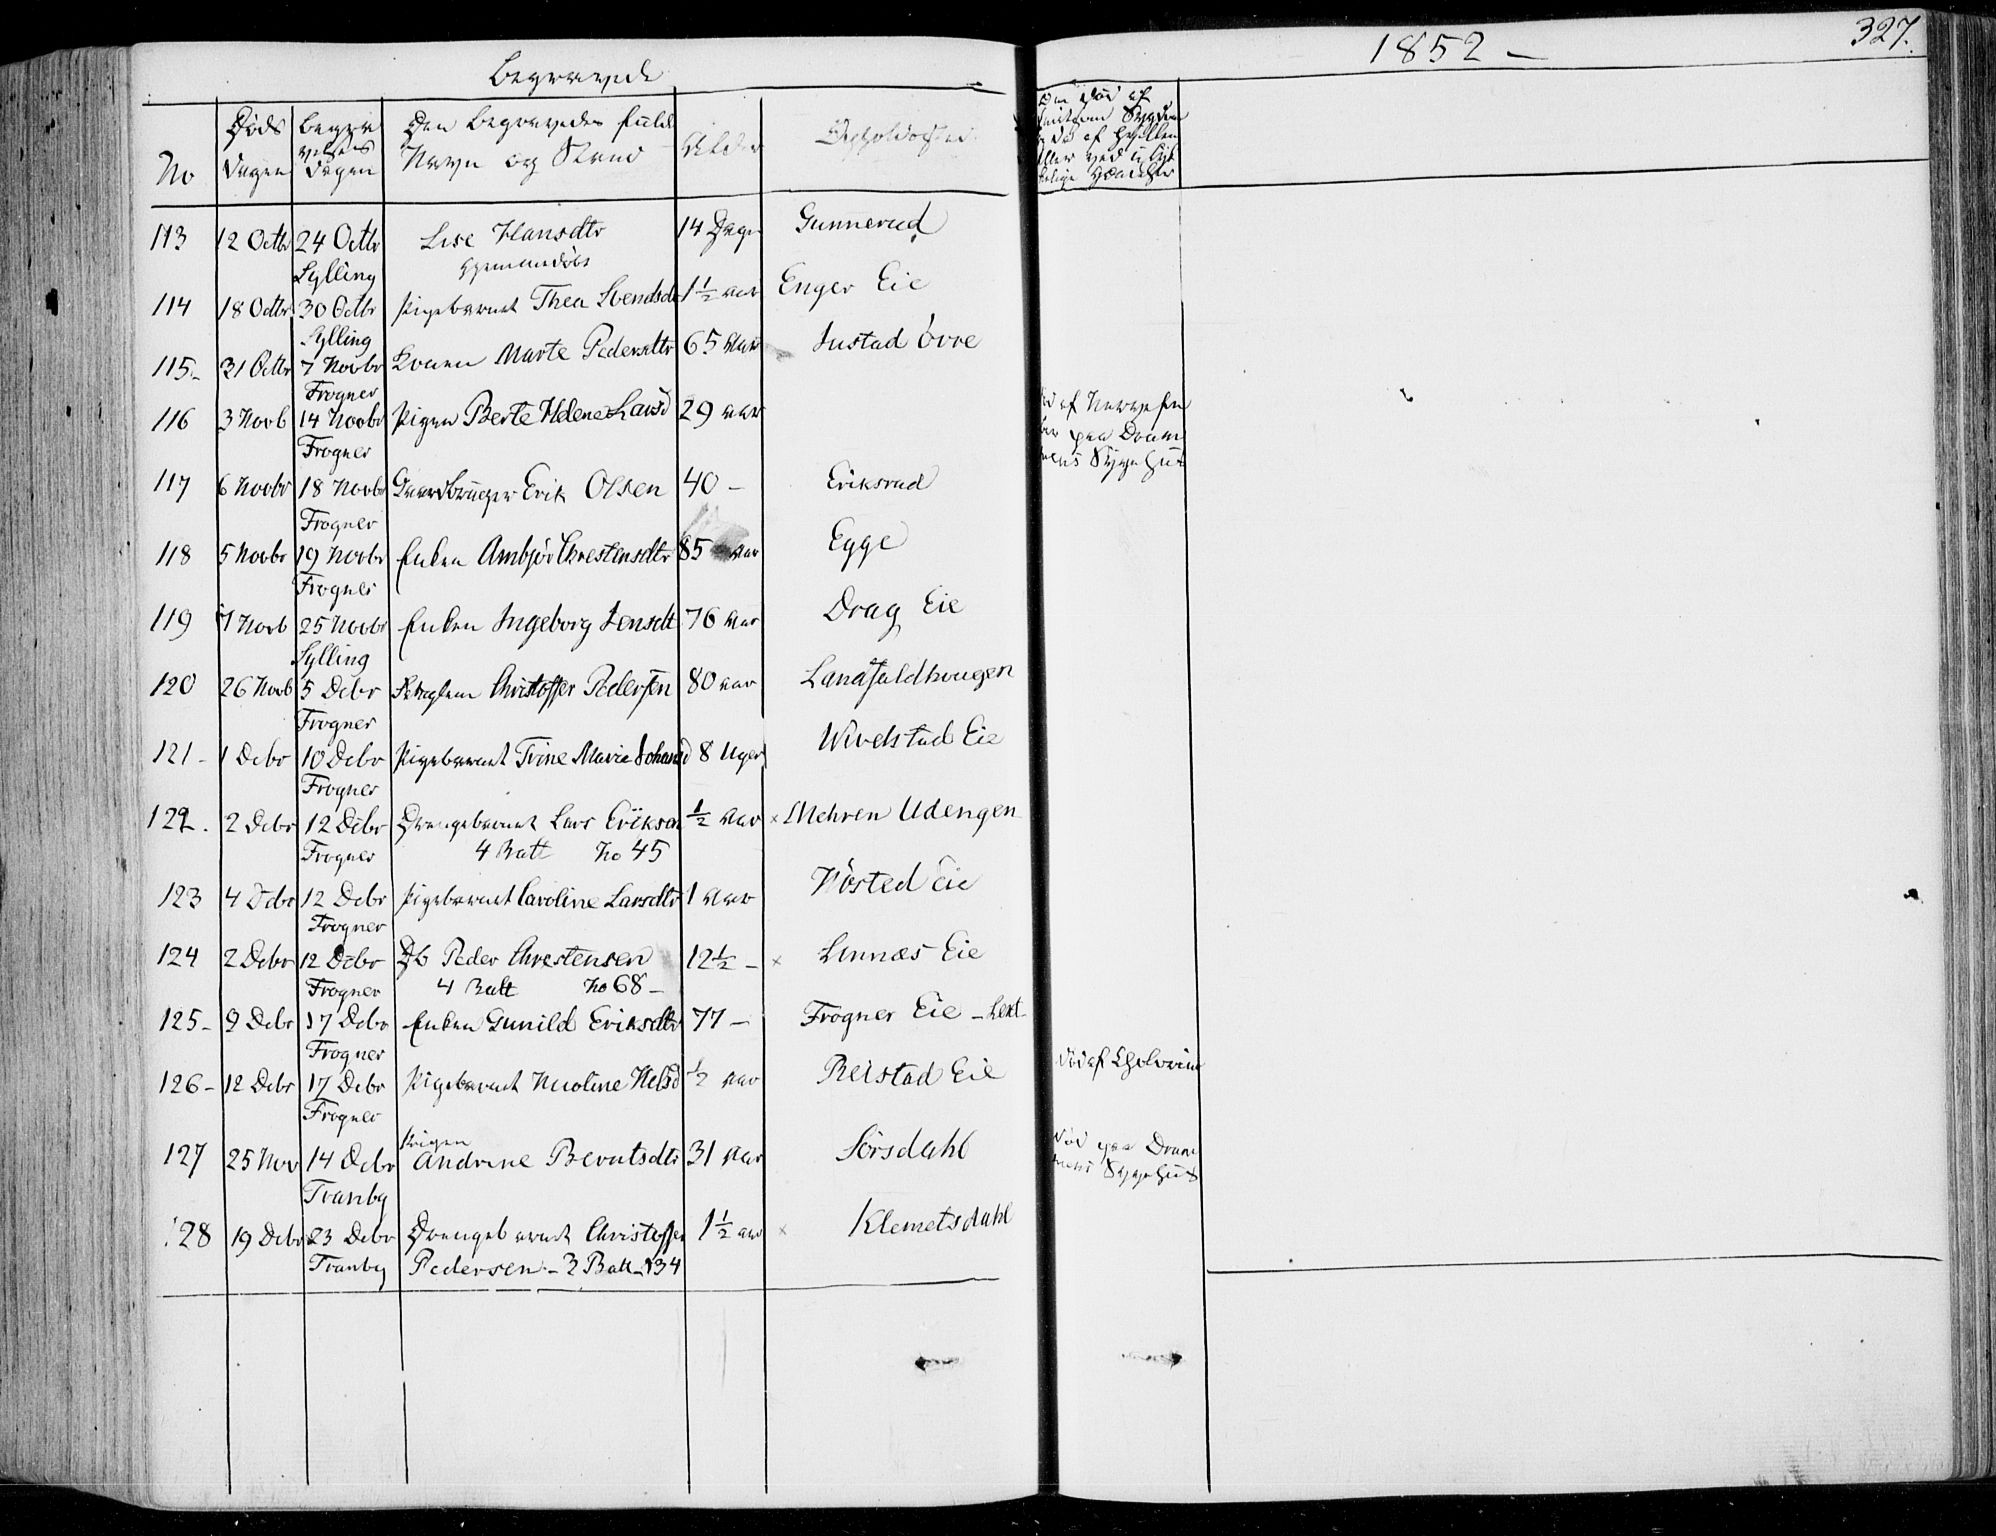 1852 –
327.
Begravede
No
Døds Dagen
Begravelses Dagen
Den Begravedes fulde Navn og Stand
Alder
Opholdssted
113 12 Octbr 24 Octbr Lise Hansdtr 14 Dage Gunnerud
Sylling hjemmedøbt
114 18 Octbr 30 Octbr Pigebarnet Thea Svendsdr 1½ aar Enger Eie
Sylling
115 – 31 Octbr 7 Novbr Konen Marte Pedersdtr 65 aar Justad övre
Frogner
116 3 Novb 14 Novbr Pigen Berte Helene Larsd 29 aar
Frogner
117 6 Novbr 18 Novbr Gaardbruger Erik Olsen 40 – Eriksrud
Frogner
118 5 Novbr 19 Novbr Enken Ambjør Chrestensdtr 85 aar Egge
Frogner
119 7 Novb 25 Novbr Enken Ingeborg Jensdt 76 aar Drag Eie
Sylling
120 26 Novb 5 Debr Christoffer Pedersen 80 aar Landfaldhougen
Frogner
121 – 1 Debr 10 Debr Pigebarnet Trine Marie Johansd 8 Uger Wivelstad Eie
Frogner
122. 2 Debr 12 Debr Drengebarnet Lars Eriksen ½ aar × Mehren Udengen
Frogner 4 Batt No 45
123 4 Debr 12 Debr Pigebarnet Caroline Larsdtr 1 aar Hösted Eie
Frogner
124 2 Debr 12 Debr Db Peder Chrestensen 12½ – × Linnæs Eie
Frogner 4 Batt No 68 –
125 – 9 Debr 17 Debr Enken Gunild Eriksdtr 77 – Frogner Eie – Lekt –
Frogner
126 – 12 Debr 17 Debr Pigebarnet Nicoline Nelsd ½ aar Reistad Eie død af Cholerine
Frogner
Pigen
127 25 Nov 14 Debr Andrine Berntsdtr 31 aar Sørsdahl død paa Dram
Tranby mens Sygehus
128 19 Debr 23 Debr Drengebarnet Christoffer 1½ aar × Klemetsdahl
Tranby Pedersen – 3 Batt – 134